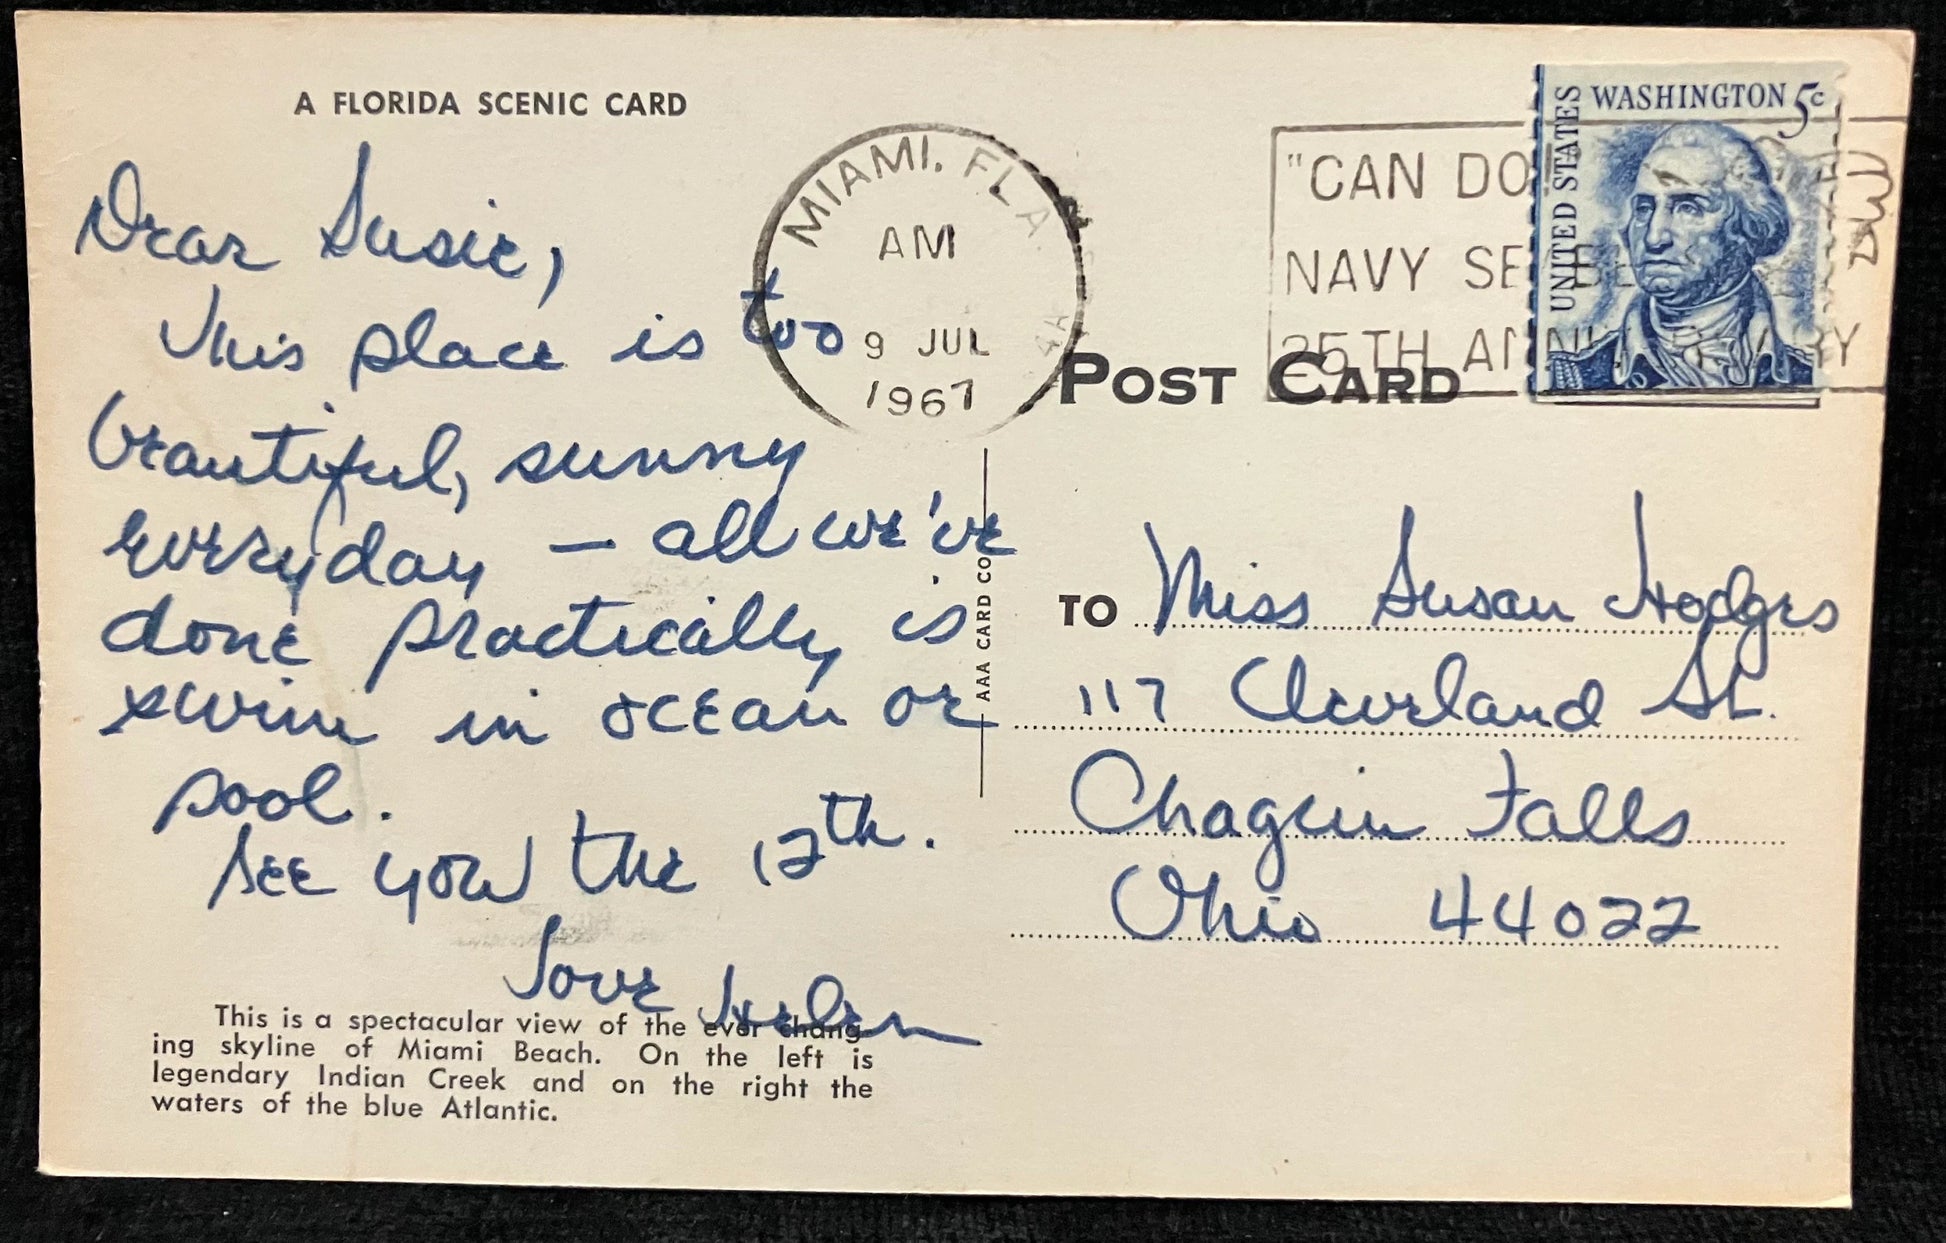 A FLORIDA SCENIC CARD
Dear Susie,
This place is too
beautiful, sunny
everyday — all we've
done practically is
swim in ocean or
pool.
See you the 12th.
Love Helen
This is a spectacular view of the ever chang-
ing skyline of Miami Beach. On the left is
legendary Indian Creek and on the right the
waters of the blue Atlantic.
MIAMI, FLA.
AM
9 JUL
1967
AAA CARD CO
"CAN DO
NAVY SE
25TH ANNIVERSARY
UNITED STATES
WASHINGTON 5c
POST CARD
TO Miss Susan Hodges
117 Cleveland St.
Chagrin Falls
Ohio 44022